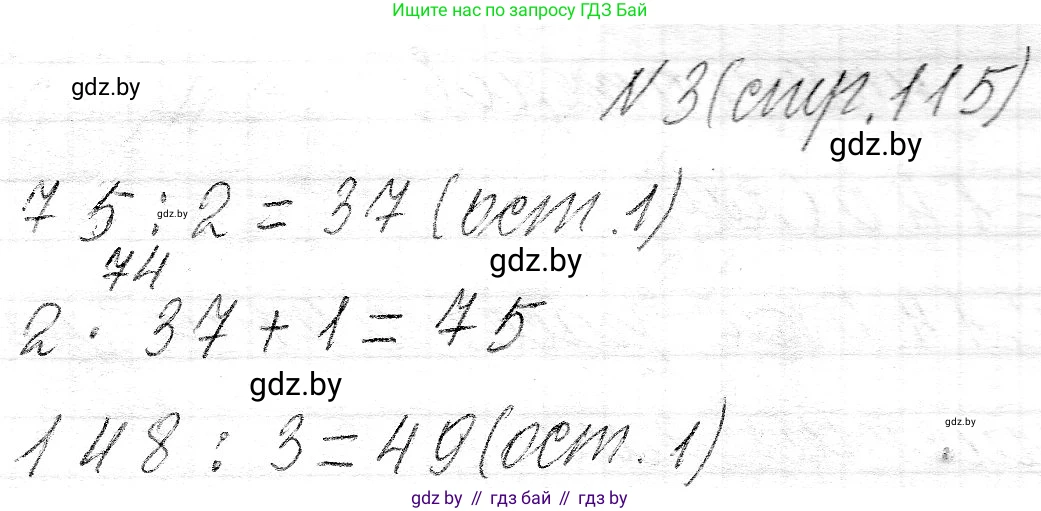 Ищите нас по запросу ГДЗ Бай
gdz.by
№ 3 (стр. 115)
gdz.by
75 : 2 = 37 (ост. 1)
gdz.by
74
gdz.by
2 · 37 + 1 = 75
gdz.by
148 : 3 = 49 (ост. 1)
gdz.by
gdz.by // гдз бай // гдз by